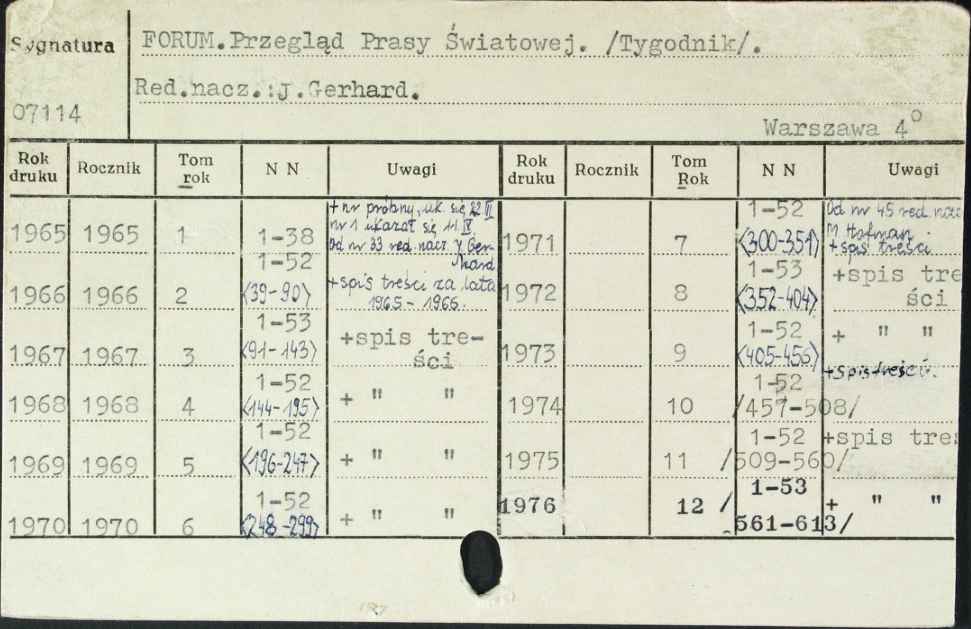 Sygnatura
FORUM.Przegląd Prasy Światowej. /Tygodnik/.
Red.nacz.:J.Gerhard.
07114
Warszawa 4°
Rok druku Rocznik Tom rok N N Uwagi Rok druku Rocznik Tom Rok N N Uwagi
1965 1965 1 1-38 + nr próbny, uk. się 22 III
nr 1 ukazał się 11.IV.
Od nr 33 red. nacz. J. Ger-
hard
1966 1966 2 1-52 <39-90> +spis treści za lata
1965-1966.
1967 1967 3 1-53 <91-143> +spis tre-
ści
1968 1968 4 1-52 <144-195> + " "
1969 1969 5 1-52 <196-247> + " "
1970 1970 6 1-52 <248-299> + " "
1971 7 1-52 <300-351> Od nr 45 red. nacz
M Hofman.
+spis treści
1972 8 1-53 <352-404> +spis tre
ści
1973 9 1-52 <405-456> + " "
1974 10 1-52 /457-508/ +spis treści.
1975 11 1-52 /509-560/ +spis treś
1976 12 1-53 /561-613/ + " "